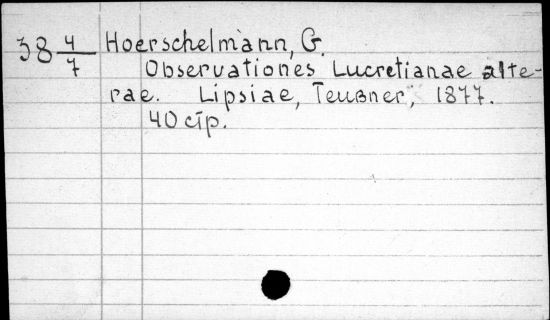 38 4/7 Hoerschelmann, G.
Observationes Lucretianae alte-
rae. Lipsiae, Teubner, 1877.
40 стр.